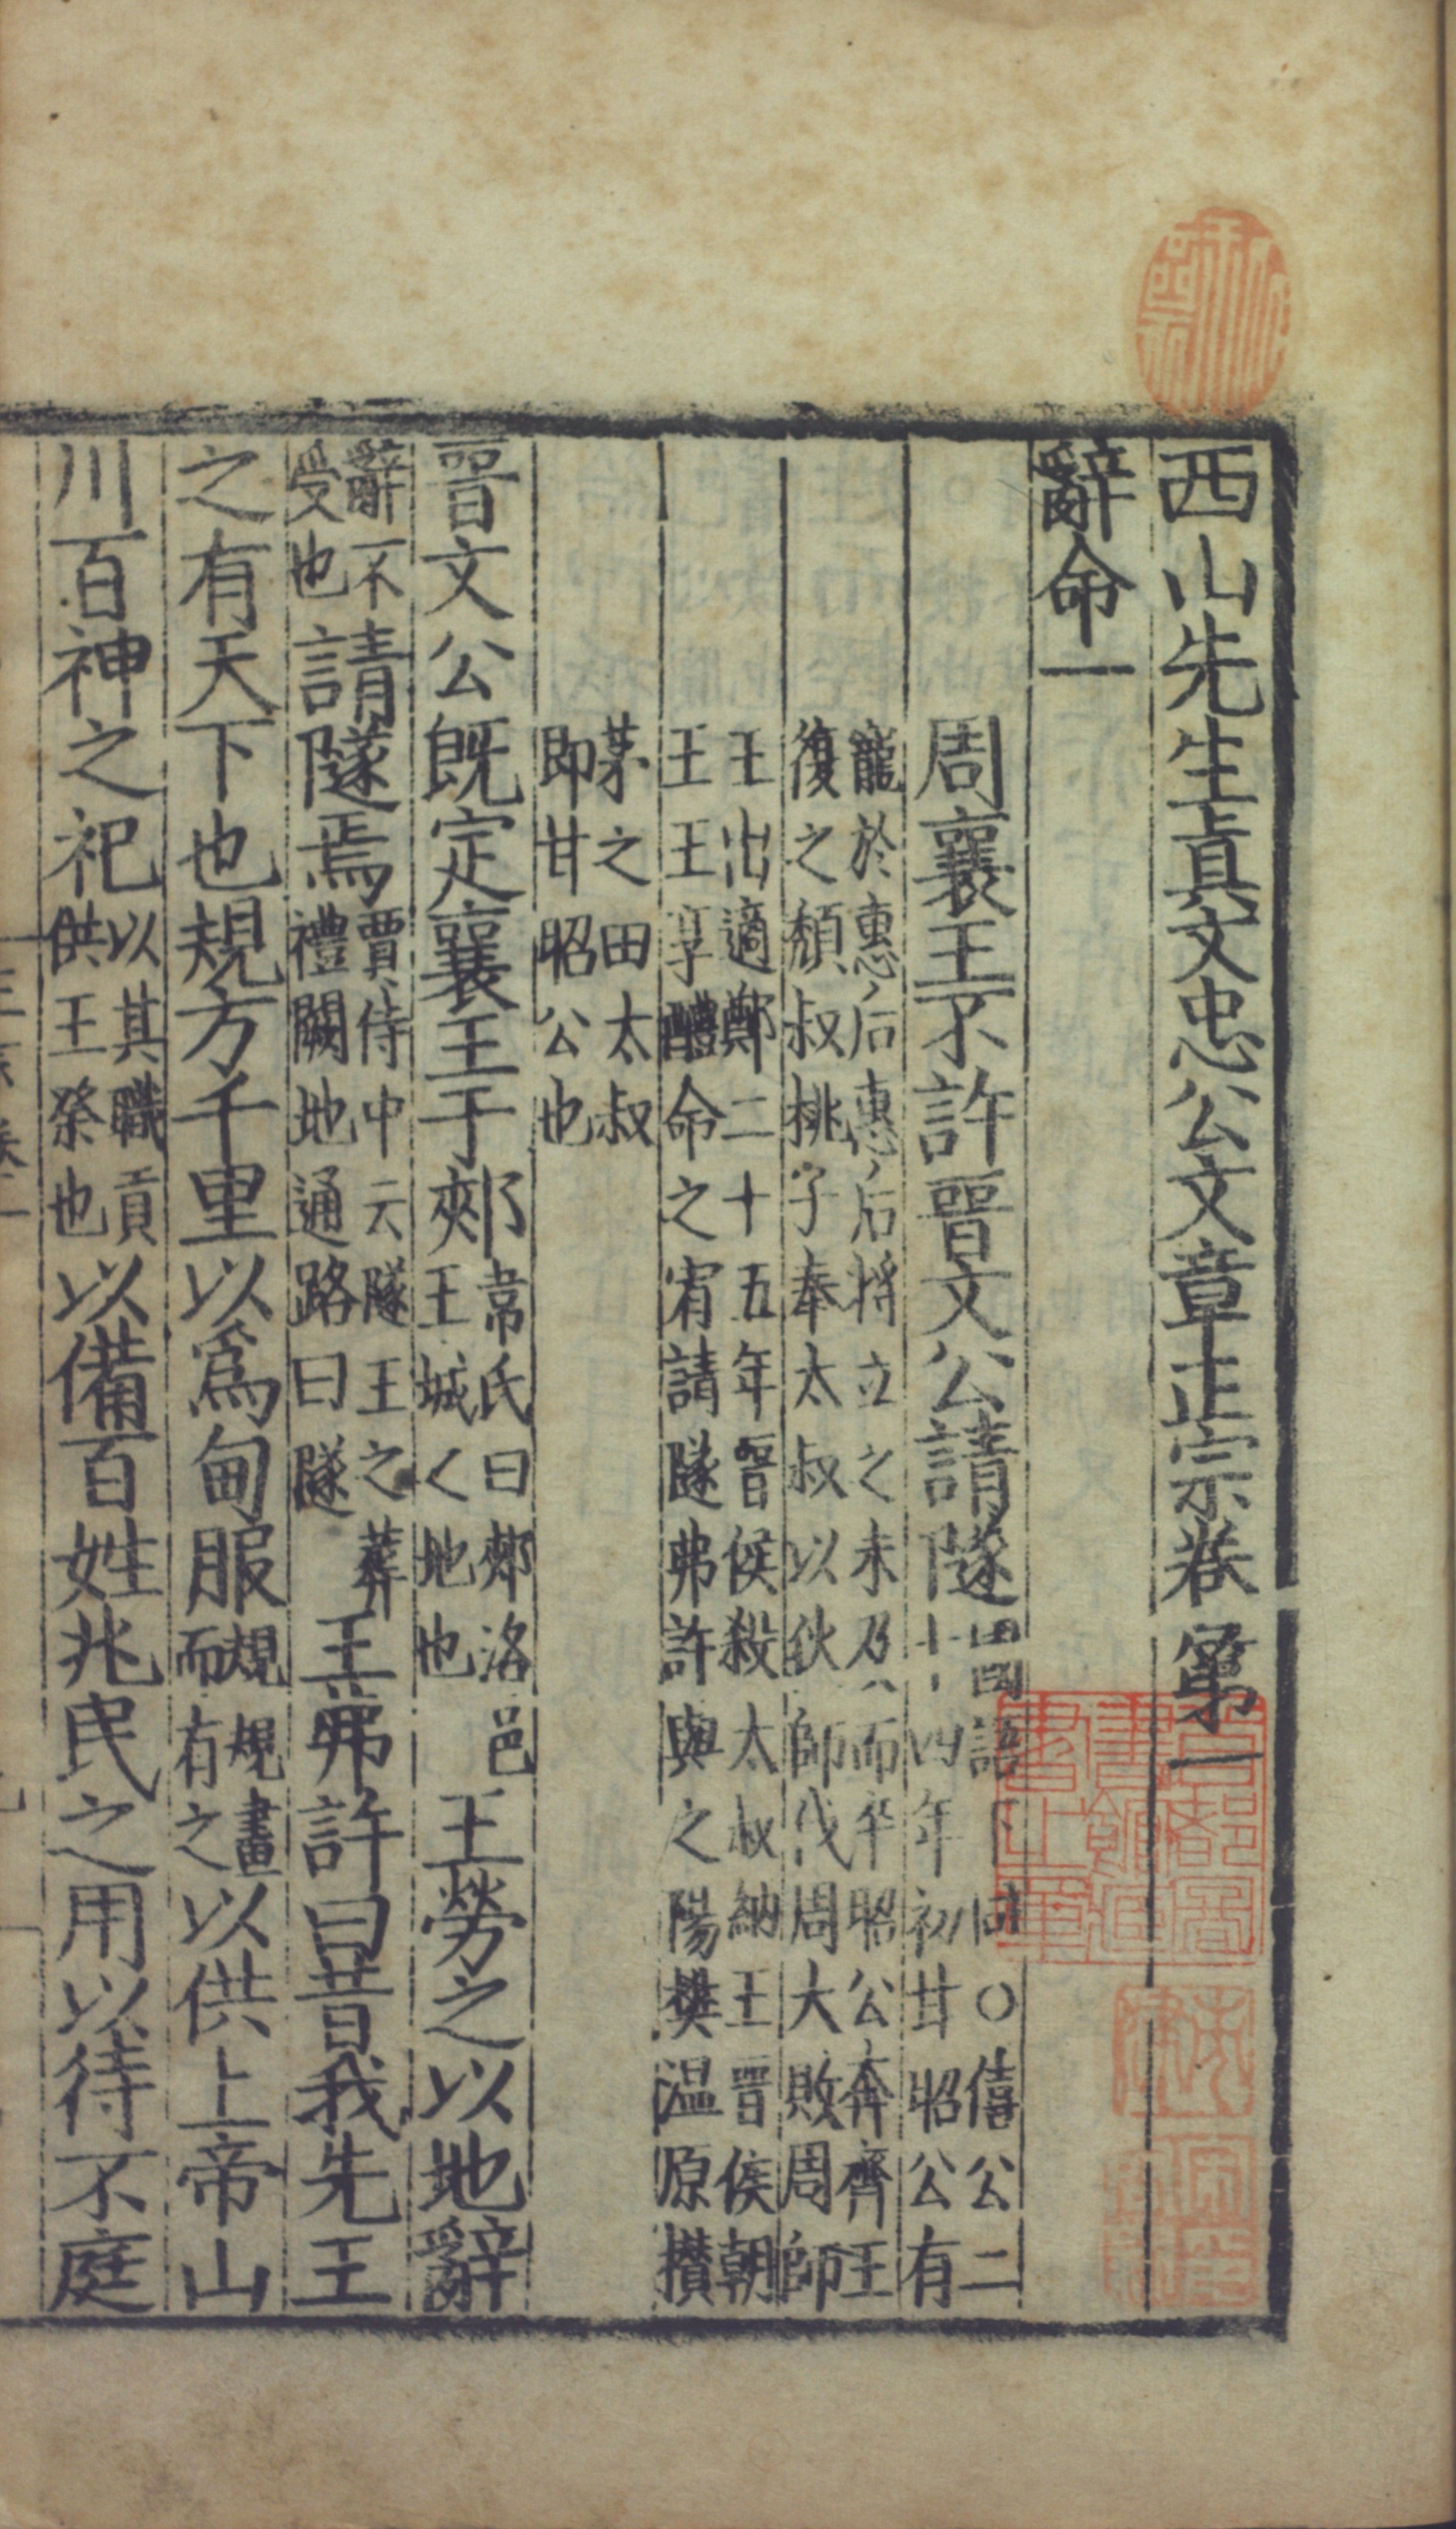 西山先生真文忠公文章正宗卷第一
辭命一
周襄王不許晉文公請隧國語下同○僖公二十四年初甘昭公有
寵於惠后惠后將立之未及而卒昭公奔齊王復之頹叔桃子奉太叔以狄師伐周大敗周師
王出適鄭二十五年晉侯殺太叔納王晉侯朝王王享醴命之宥請隧弗許與之陽樊温原攢
茅之田太叔即甘昭公也
晉文公既定襄王于郟韋氏曰郟洛邑王城之地也王勞之以地辭
辭不受也請隧焉賈侍中云隧王之葬禮闕地通路曰隧王弗許曰昔我先王
之有天下也規方千里以爲甸服規規畫而有之以供上帝山
川百神之祀以其職貢供王祭也以備百姓兆民之用以待不庭